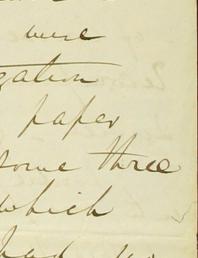 were
zation
paper
some three
which
had